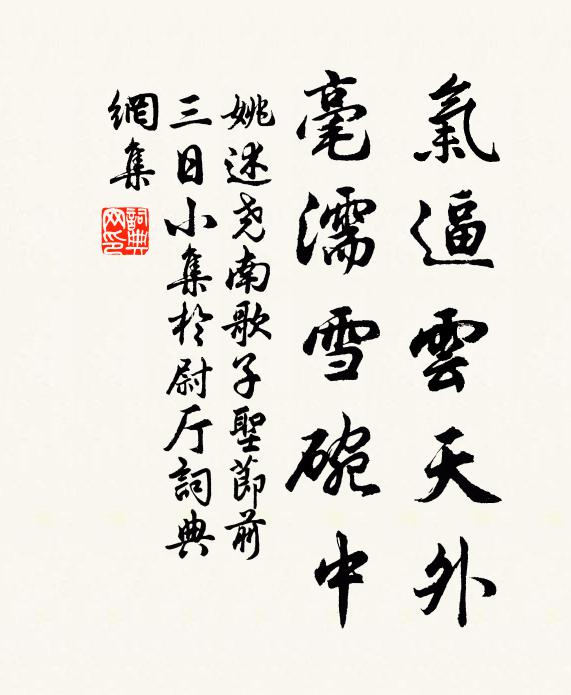 氣逼雲天外
毫濡雪碗中
姚述尧南歌子聖節前
三日小集於尉厅詞典
網集
詞典网印